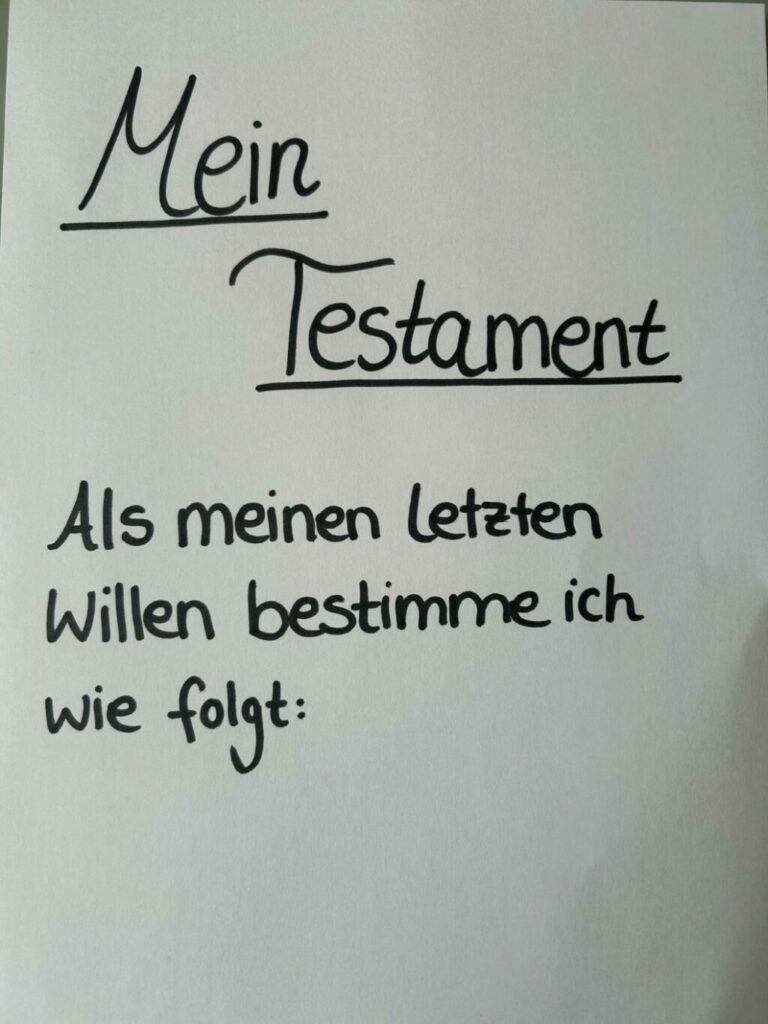 Mein
Testament
Als meinen letzten
Willen bestimme ich
wie folgt: